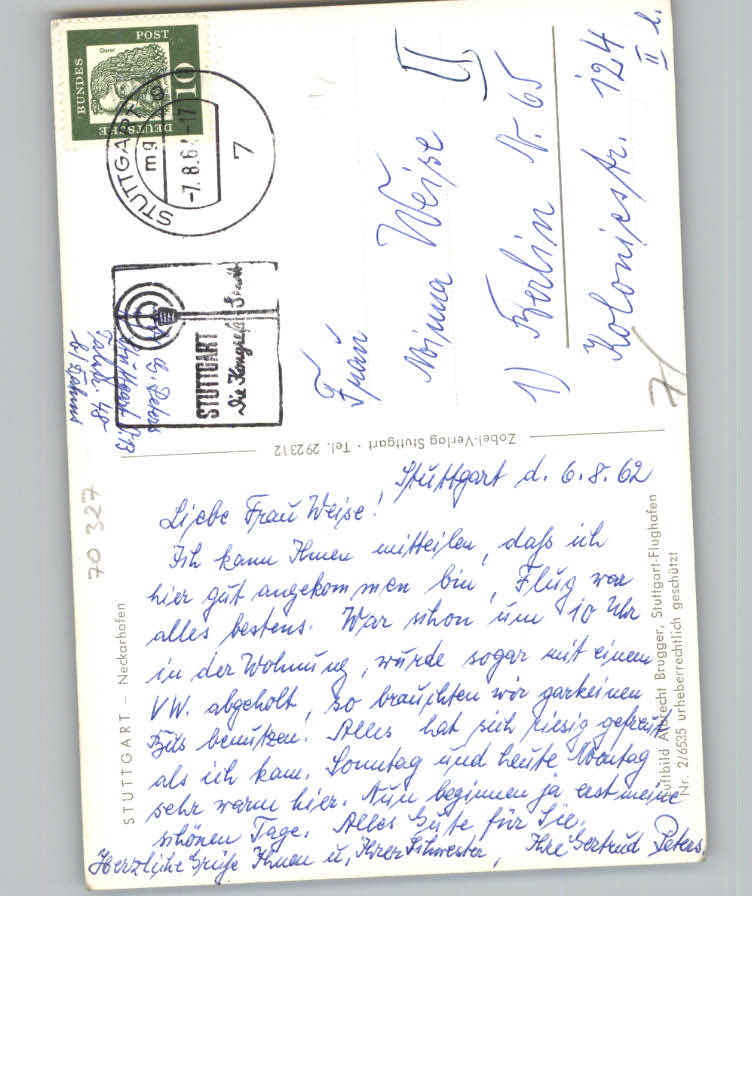 DEUTSCHE
BUNDES
POST
Dürer
10
STUTTGART 9
mg
-7.8.62-17
7
STUTTGART
Die Kongreß-Stadt
G. Peters
Stuttgart
Talstr. 40
b/
II
Frau
Minna Weise
1) Berlin N. 65
Koloniestr. 124
II l.
Zobel-Verlag Stuttgart · Tel. 292312
70 327
Stuttgart d. 6.8.62
Liebe Frau Weise!
Ich kann Ihnen mitteilen, daß ich
hier gut angekommen bin, Flug war
alles bestens. War schon um 10 Uhr
in der Wohnung, wurde sogar mit einem
VW. abgeholt, so brauchten wir garkeinen
Bus benutzen. Alles hat sich riesig gefreut
als ich kam. Sonntag und heute Montag
sehr warm hier. Nun beginnen ja erst meine
schönen Tage. Alles Gute für Sie.
Herzliche Grüße Ihnen u. Ihrer Schwester, Ihre Gertrud Peters.
STUTTGART – Neckarhofen
Luftbild Albrecht Brugger, Stuttgart-Flughafen
Nr. 2/6535 urheberrechtlich geschützt